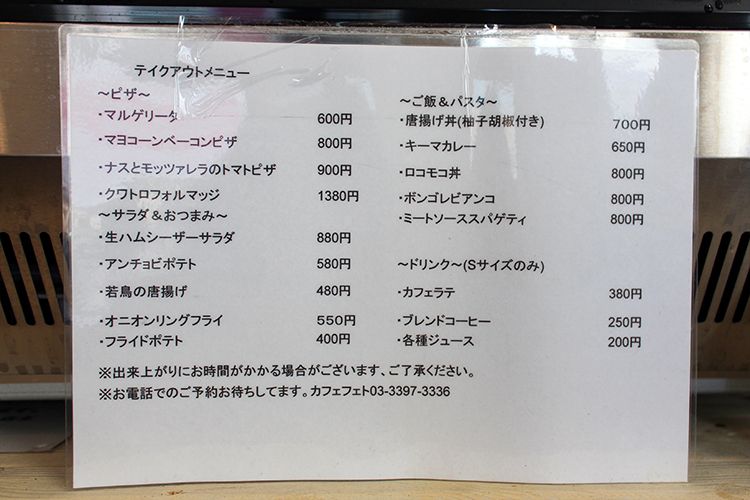 テイクアウトメニュー
～ピザ～
・マルゲリータ 600円
・マヨコーンベーコンピザ 800円
・ナスとモッツァレラのトマトピザ 900円
・クワトロフォルマッジ 1380円
～サラダ＆おつまみ～
・生ハムシーザーサラダ 880円
・アンチョビポテト 580円
・若鳥の唐揚げ 480円
・オニオンリングフライ 550円
・フライドポテト 400円
～ご飯＆パスタ～
・唐揚げ丼(柚子胡椒付き) 700円
・キーマカレー 650円
・ロコモコ丼 800円
・ボンゴレビアンコ 800円
・ミートソーススパゲティ 800円
～ドリンク～(Sサイズのみ)
・カフェラテ 380円
・ブレンドコーヒー 250円
・各種ジュース 200円
※出来上がりにお時間がかかる場合がございます、ご了承ください。
※お電話でのご予約お待ちしてます。カフェフェト03-3397-3336